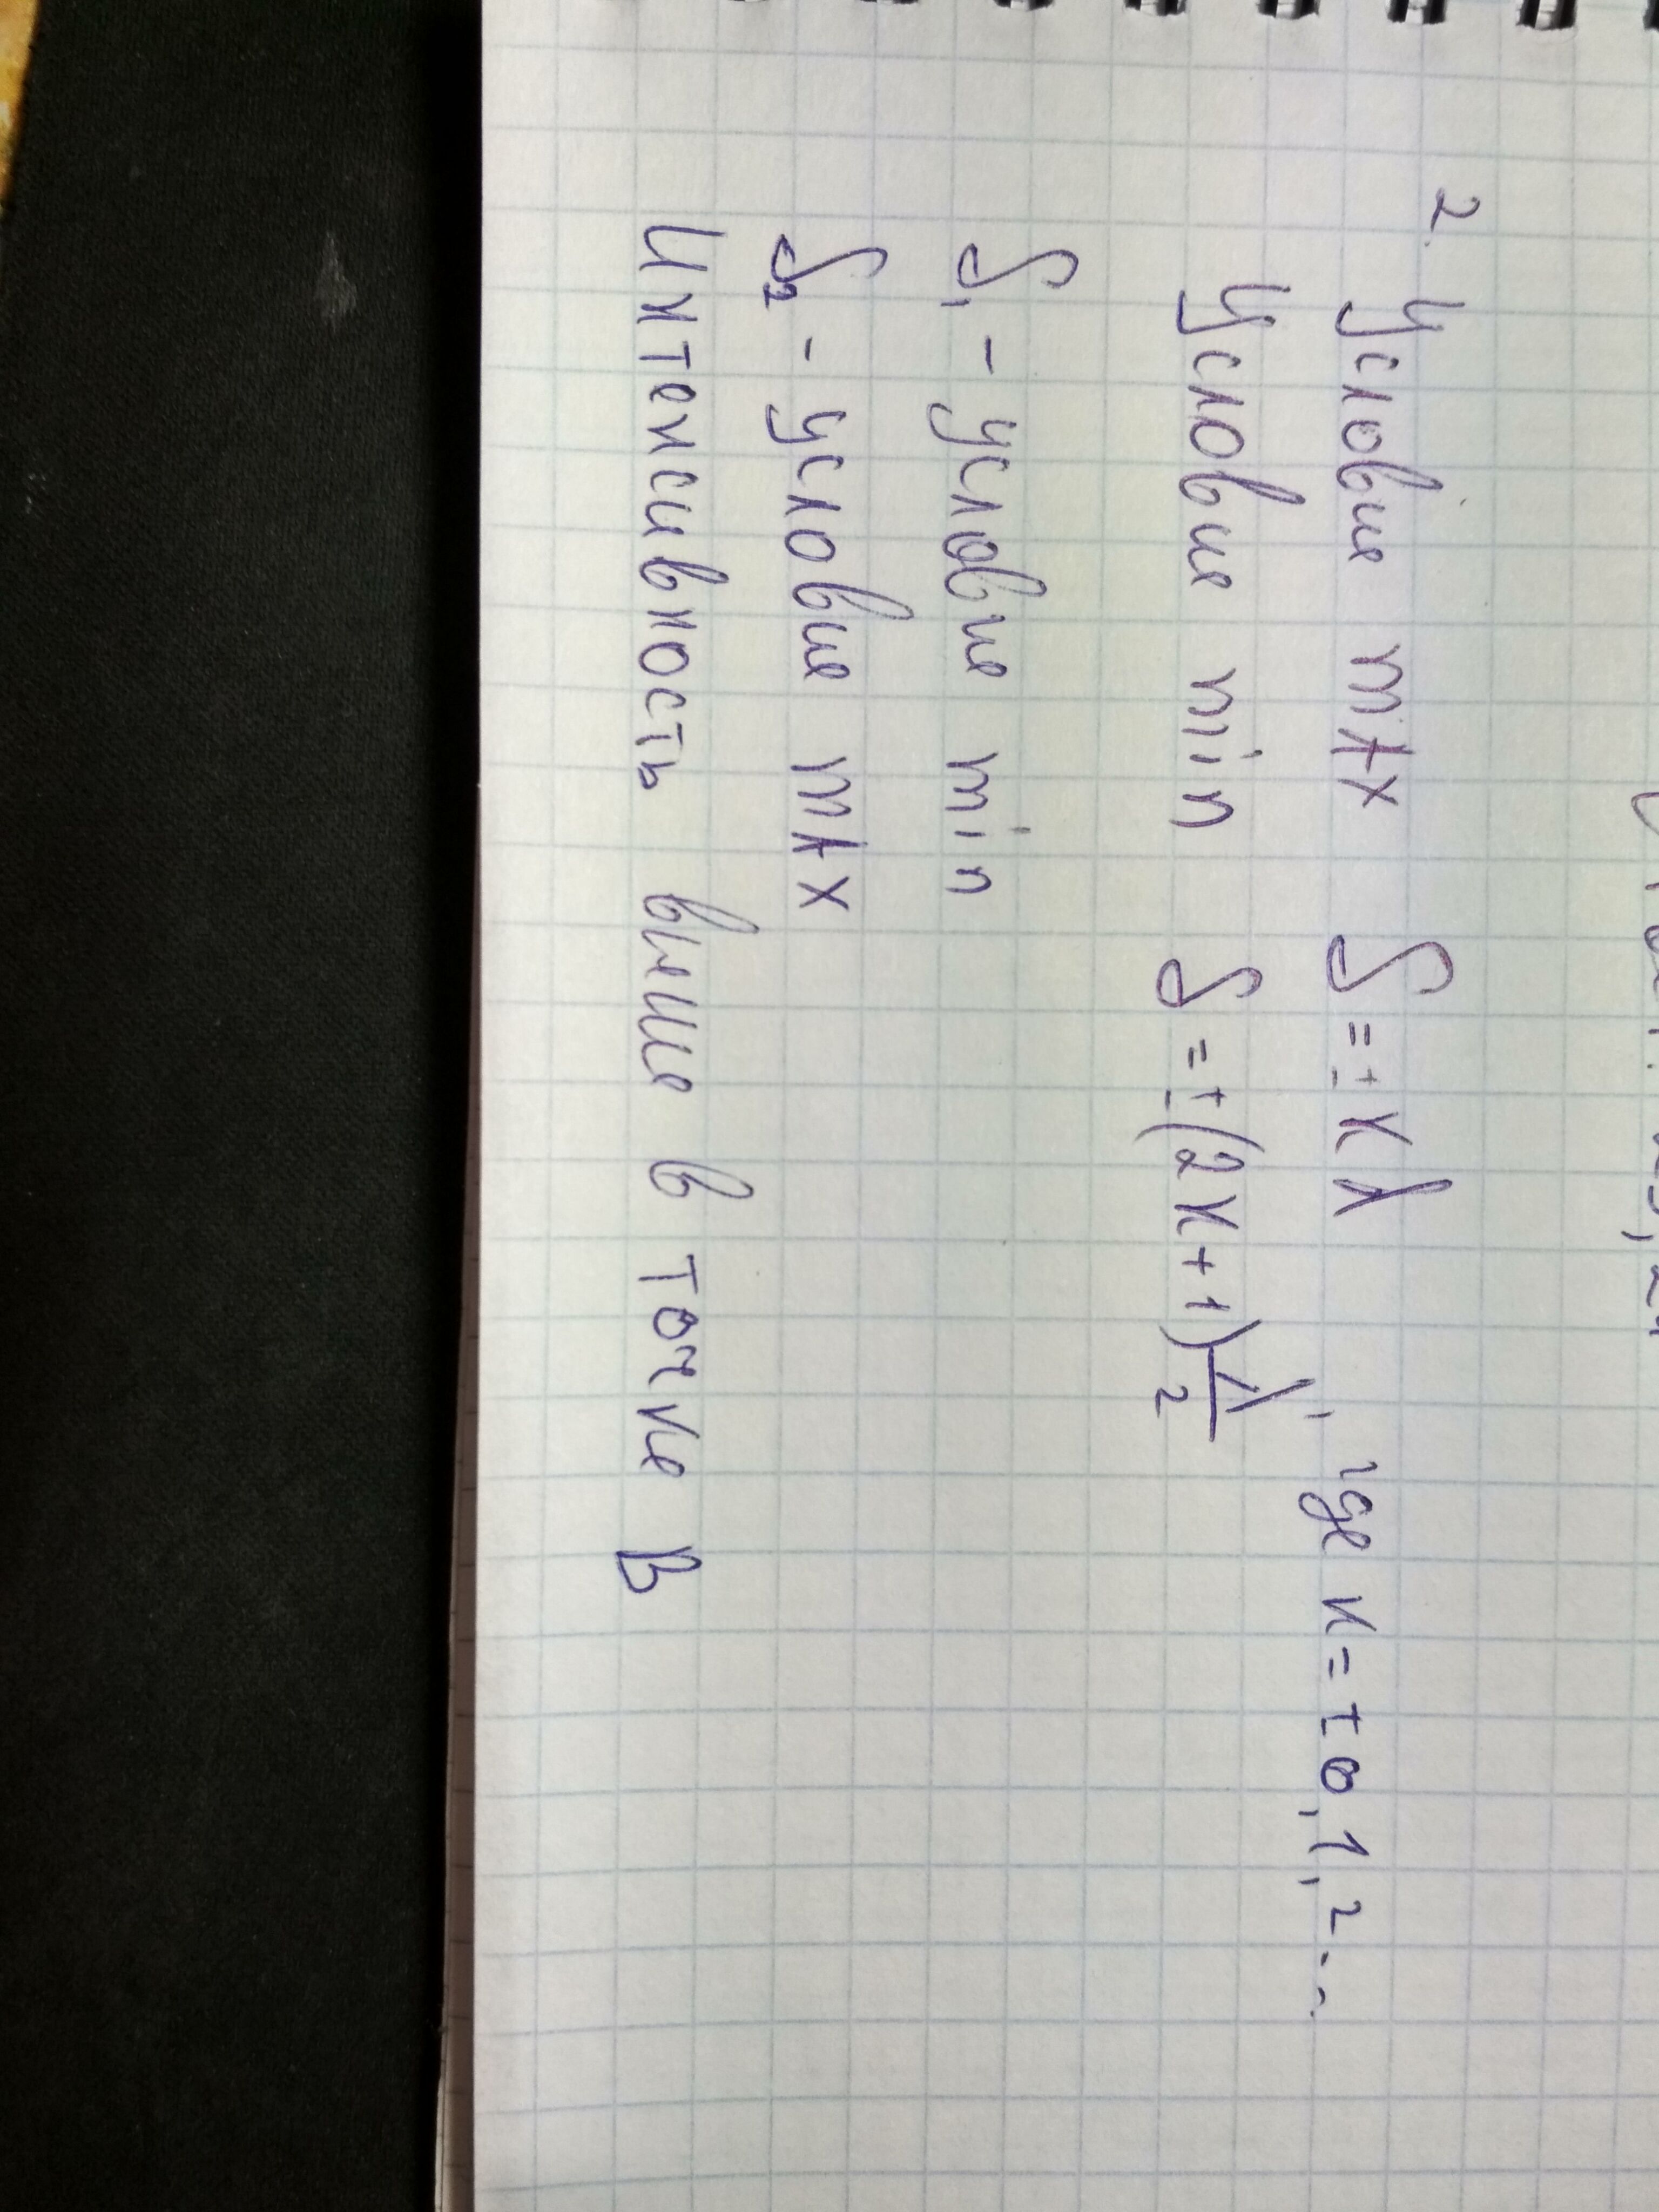 2. Условие mAx δ = ± kλ
Условие min δ = ± (2k+1) λ/2, где k = ±0,1,2...
δ₁ - условие min
δ₂ - условие mAx
Интенсивность выше в точке B